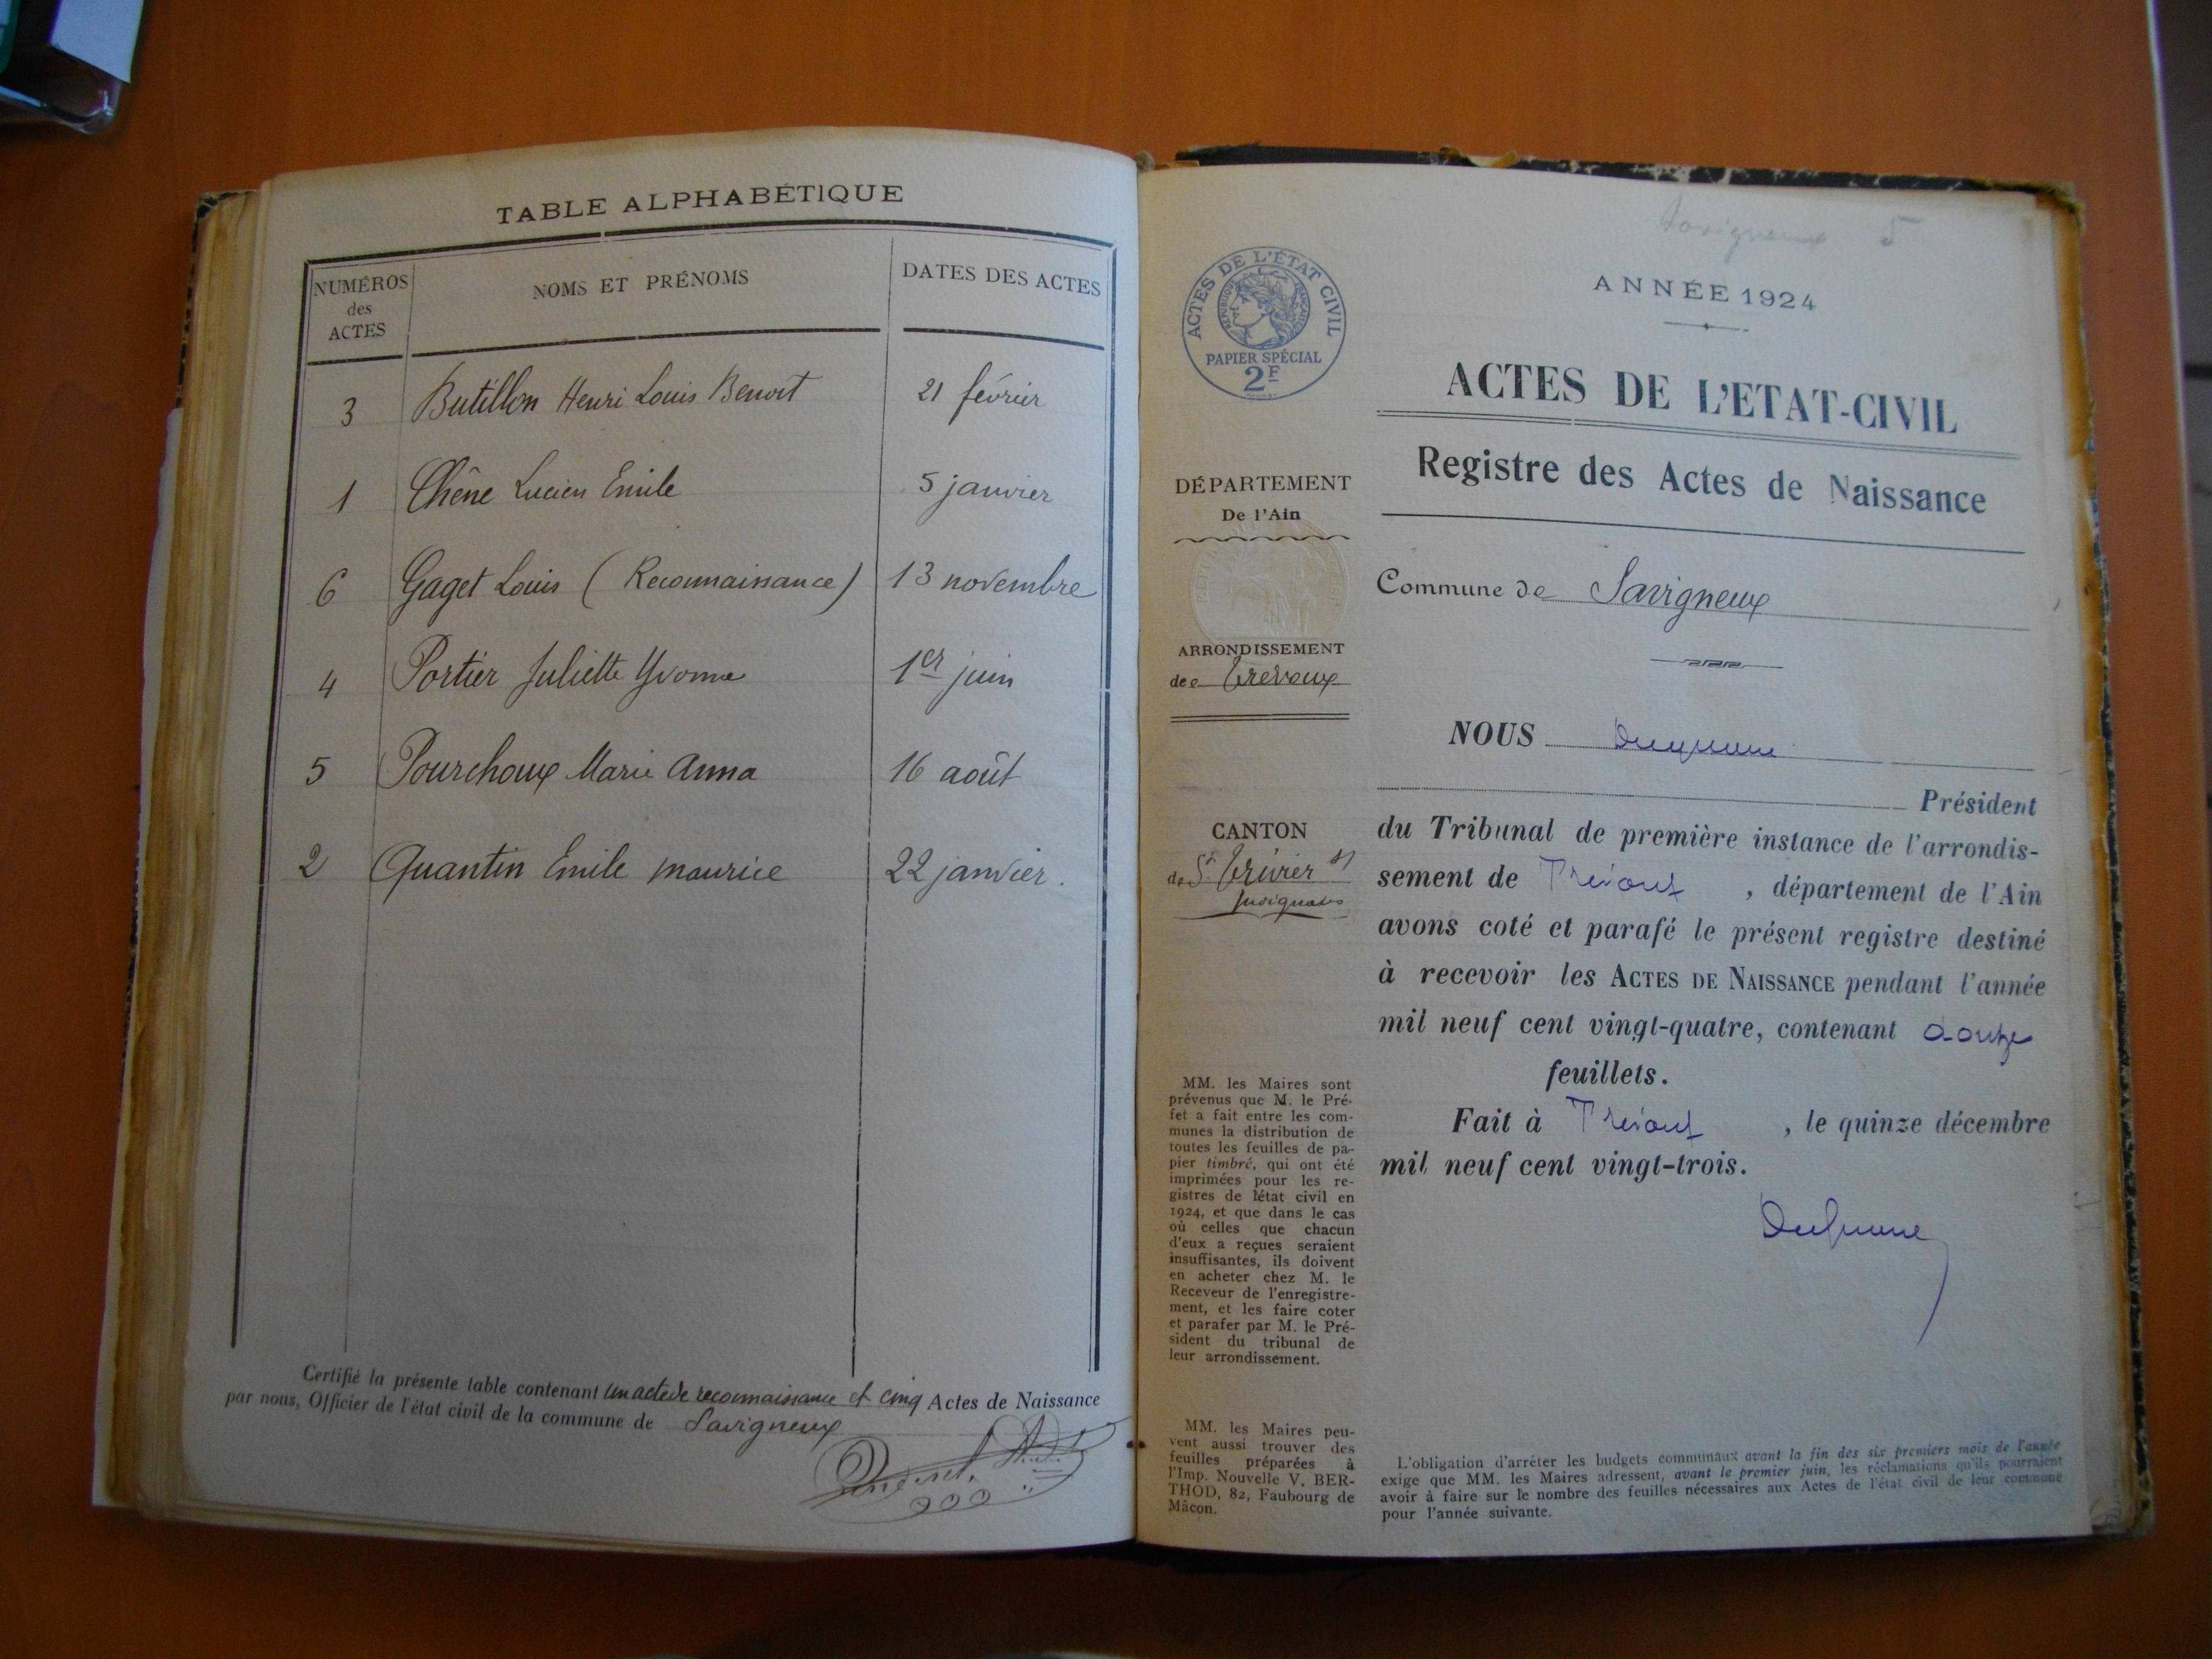 TABLE ALPHABÉTIQUE
NUMÉROS
des
ACTES
NOMS ET PRÉNOMS
DATES DES ACTES
3 Butillon Henri Louis Benoit 21 février
1 Chêne Lucien Emile 5 janvier
6 Gaget Louis (Reconnaissance) 13 novembre
4 Portier Juliette Yvonne 1er juin
5 Pourchoux Marie Anna 16 août
2 Quantin Emile Maurice 22 janvier.
Certifié la présente table contenant un acte de reconnaissance et cinq Actes de Naissance
par nous, Officier de l'état civil de la commune de Savigneux
Savigneux 5
ACTES DE L'ÉTAT CIVIL
RÉPUBLIQUE FRANÇAISE
PAPIER SPÉCIAL
2F
ANNÉE 1924
ACTES DE L'ETAT-CIVIL
Registre des Actes de Naissance
DÉPARTEMENT
De l'Ain
Commune de Savigneux
ARRONDISSEMENT
de Trévoux
CANTON
de St Trivier s/
NOUS
Président
du Tribunal de première instance de l'arrondis-
sement de Trévoux, département de l'Ain
avons coté et parafé le présent registre destiné
à recevoir les ACTES DE NAISSANCE pendant l'année
mil neuf cent vingt-quatre, contenant douze
feuillets.
Fait à Trévoux, le quinze décembre
mil neuf cent vingt-trois.
MM. les Maires sont
prévenus que M. le Pré-
fet a fait entre les com-
munes la distribution de
toutes les feuilles de pa-
pier timbré, qui ont été
imprimées pour les re-
gistres de l'état civil en
1924, et que dans le cas
où celles que chacun
d'eux a reçues seraient
insuffisantes, ils doivent
en acheter chez M. le
Receveur de l'enregistre-
ment, et les faire coter
et parafer par M. le Pré-
sident du tribunal de
leur arrondissement.
MM. les Maires peu-
vent aussi trouver des
feuilles préparées à
l'Imp. Nouvelle V. BER-
THOD, 82, Faubourg de
Mâcon.
L'obligation d'arrêter les budgets communaux avant la fin des six premiers mois de l'année
exige que MM. les Maires adressent, avant le premier juin, les réclamations qu'ils pourraient
avoir à faire sur le nombre des feuilles nécessaires aux Actes de l'état civil de leur commune
pour l'année suivante.